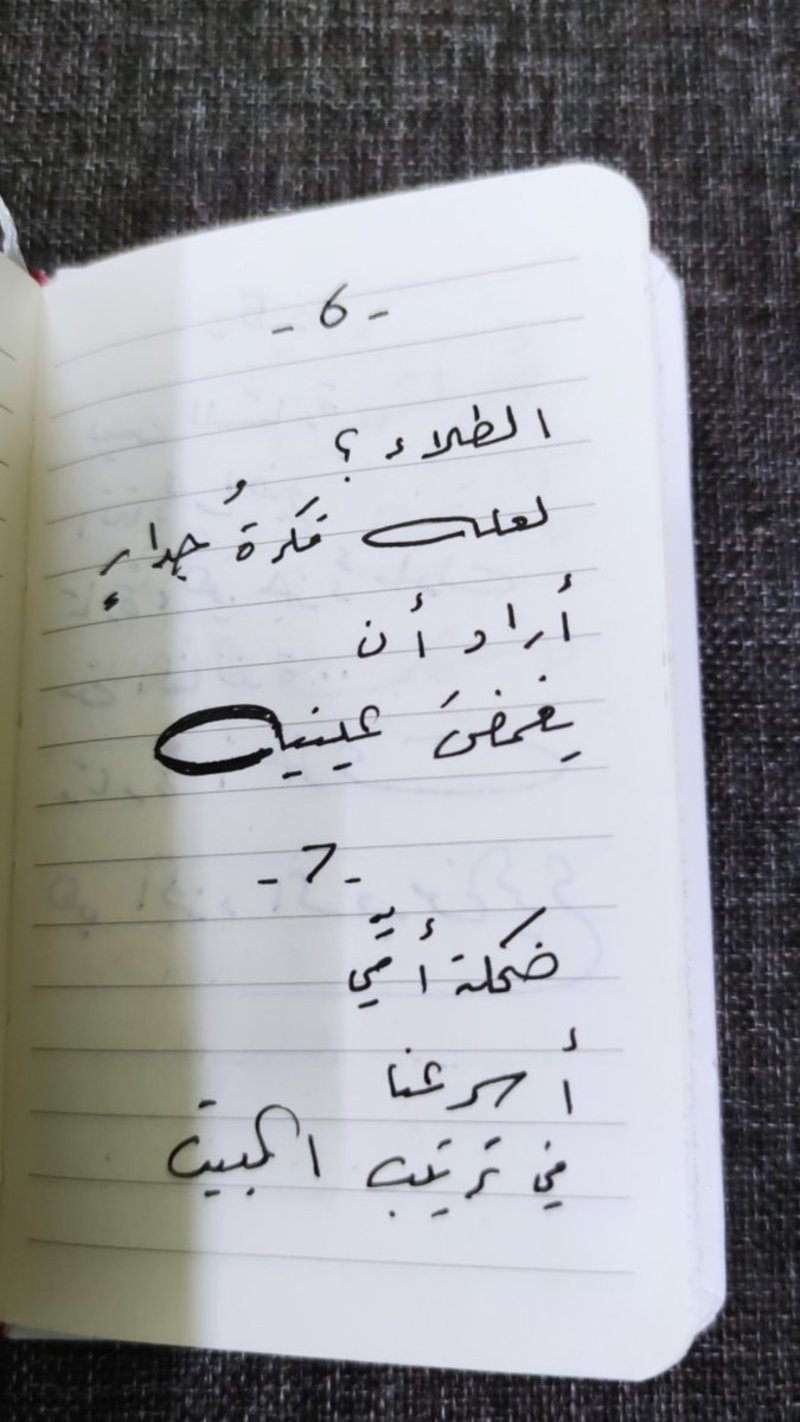 - 6 -
الطلاء ؟
لعله فكرةُ جدارٍ
أراد أن
يغمضَ عينيه
- 7 -
ضحكة أمّي
أسرعنا
في ترتيب البيت